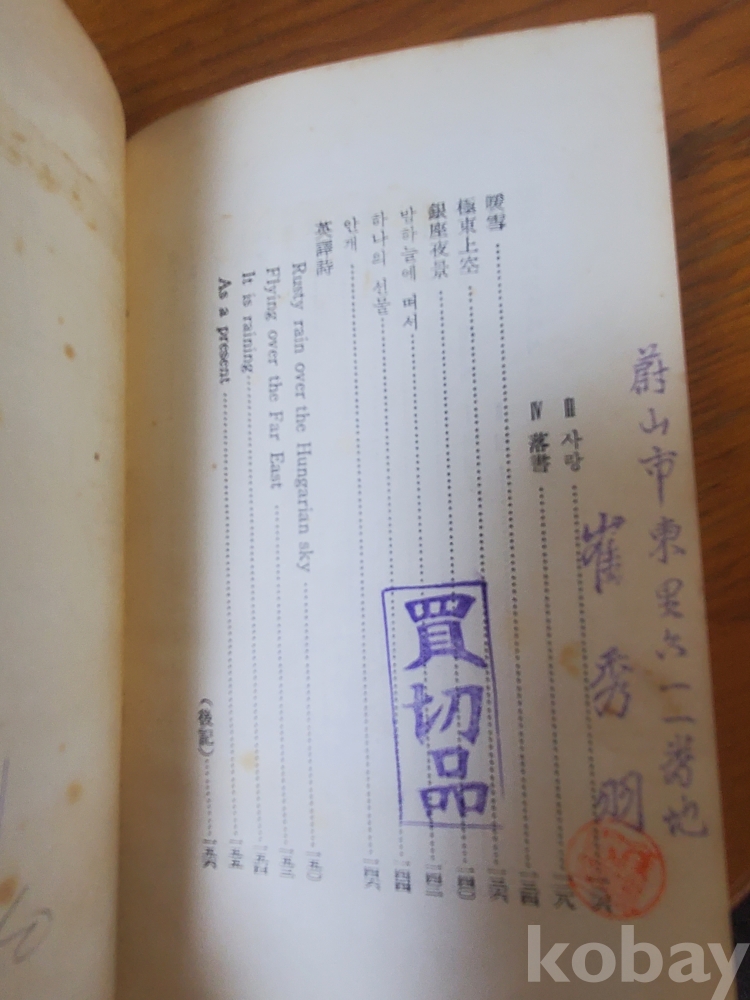 蔚山市東里六一一番地
崔秀
Ⅲ 사랑
Ⅳ 落書
暖雪 一三四
極東上空 一三六
銀座夜景 一四〇
밤하늘에 떠서 一四二
하나의 선물 一四四
안개 一四六
英譯詩
Rusty rain over the Hungarian sky 一五〇
Flying over the Far East 一五二
It is raining 一五四
As a present 一五五
(後記) 一五六
買切品
kobay